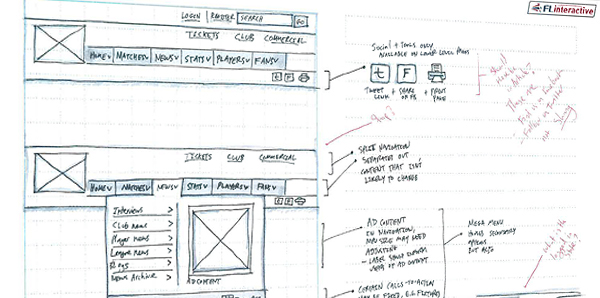 FL interactive
LOGIN | REGISTER SEARCH GO
TICKETS CLUB COMMERCIAL
HOME MATCHES NEWS STATS PLAYERS FANS
t F
SOCIAL + TOOLS ONLY
AVAILABLE ON LOWER LEVEL PAGES
t F
TWEET + SHARE + PRINT
LINK ON FB PAGE
TICKETS CLUB COMMERCIAL
HOME MATCHES NEWS STATS PLAYERS FANS
t F
SPLIT NAVIGATION
SEPARATES OUT
CONTENT THAT ISN'T
LIKELY TO CHANGE
Interviews >
Club news >
Player news >
League news >
Blogs >
News Archive >
AD CONTENT
AD CONTENT
IN NAVIGATION,
MPU SIZE MAY NEED
ADJUSTING
- LABEL SHOULD INFORM
USER OF AD CONTENT
MEGA MENU
HOLDS SECONDARY
OPTIONS
BUT ALSO
COMMON CALLS-TO-ACTION